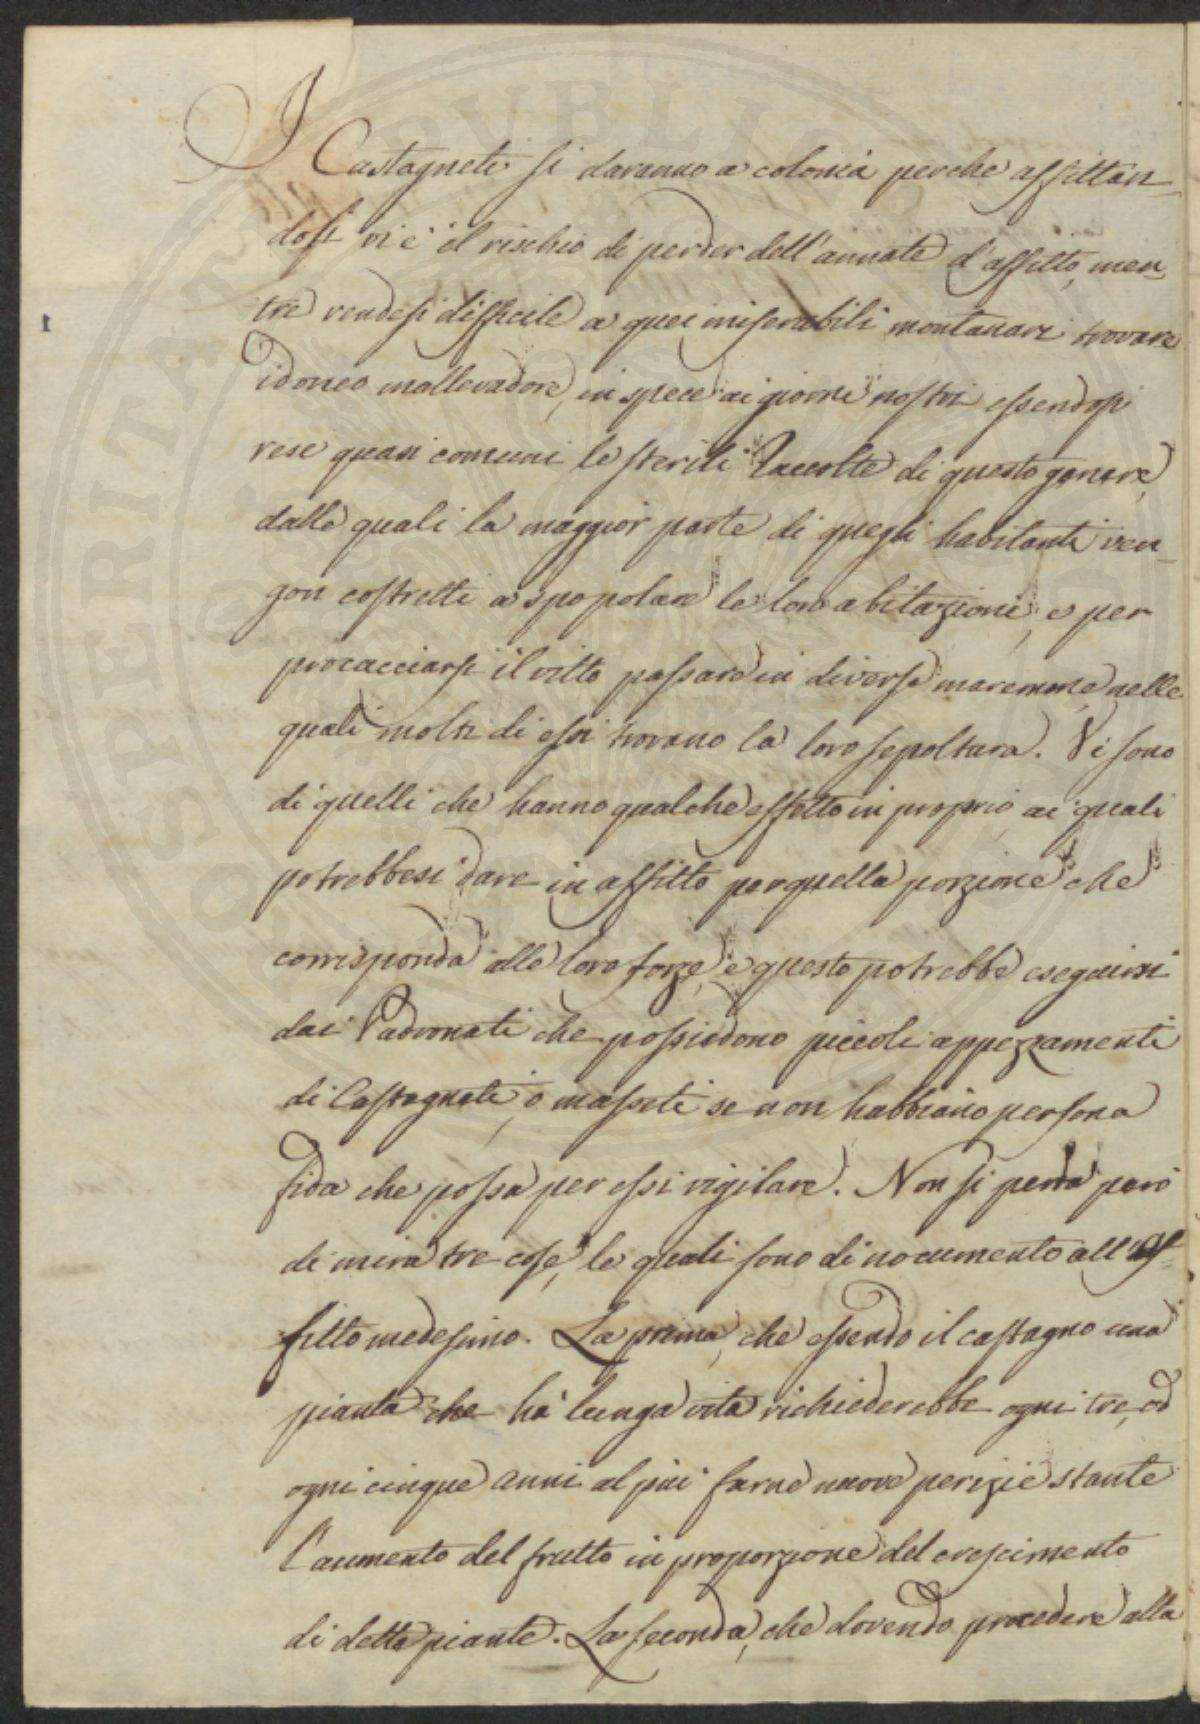 I Castagneti si daranno a colonia perche affittan-
dosi vi e' il rischio di perder dell'annate d'affitto, men-
tre rendesi difficile a quei miserabili montanari trovare
idoneo mallevadore, in spece ai giorni nostri essendosi
rese quasi comuni le sterili Raccolte di questo genere,
dalle quali la maggior parte di quegli habitanti ven-
gon costretti a spopolare le loro abitazioni, e per
procacciarsi il vitto passare in diverse maremme, nelle
quali molti di essi trovano la loro sepoltura. Vi sono
di quelli che hanno qualche effetto in proprio, ai quali
potrebbesi dare in affitto per quella porzione che
corrisponda alle loro forze, e questo potrebbe eseguirsi
dai Padronati che possiedono piccoli appezzamenti
di Castagneti, o masseti se non habbiano persona
fida che possa per essi vigilare. Non si perda però
di mira tre cose, le quali sono di nocumento all'Af-
fitto medesimo. La prima, che essendo il castagno una
pianta che hà lunga vita richiederebbe ogni tre, od
ogni cinque anni al più farne nuove perizie stante
l'aumento del frutto in proporzione del crescimento
di dette piante. La seconda, che dovendo procedere alla
PROSPERITATI PUBLICAE
1